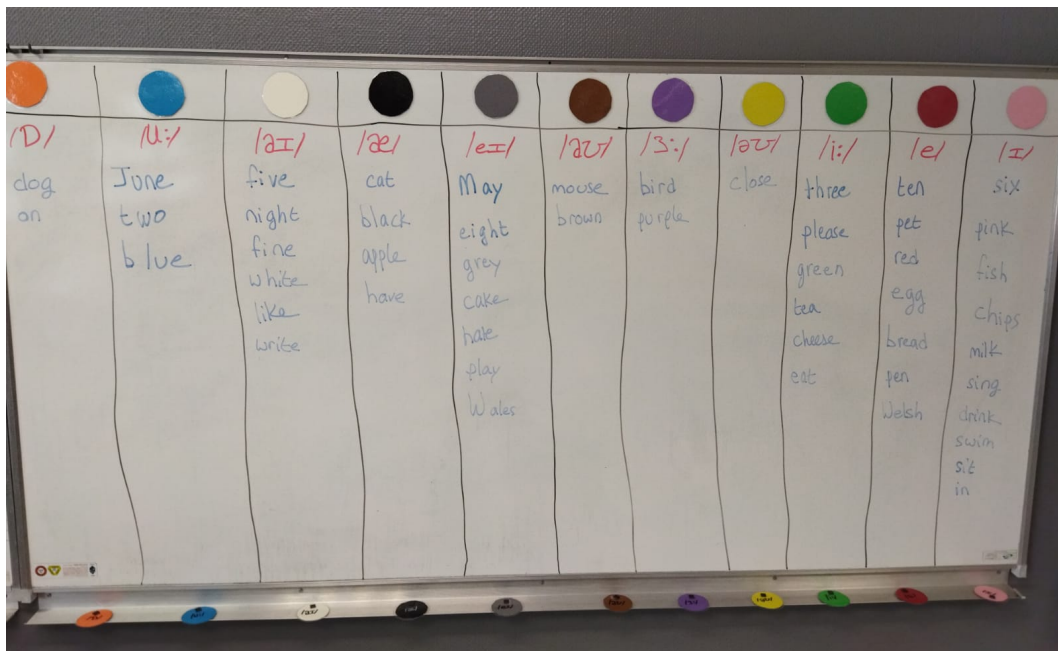 /ɒ/
dog
on
/u:/
June
two
blue
/aɪ/
five
night
fine
white
like
write
/æ/
cat
black
apple
have
/eɪ/
May
eight
grey
cake
hate
play
Wales
/aʊ/
mouse
brown
/ɜ:/
bird
purple
/əʊ/
close
/i:/
three
please
green
tea
cheese
eat
/e/
ten
pet
red
egg
bread
pen
Welsh
/ɪ/
six
pink
fish
chips
milk
sing
drink
swim
sit
in